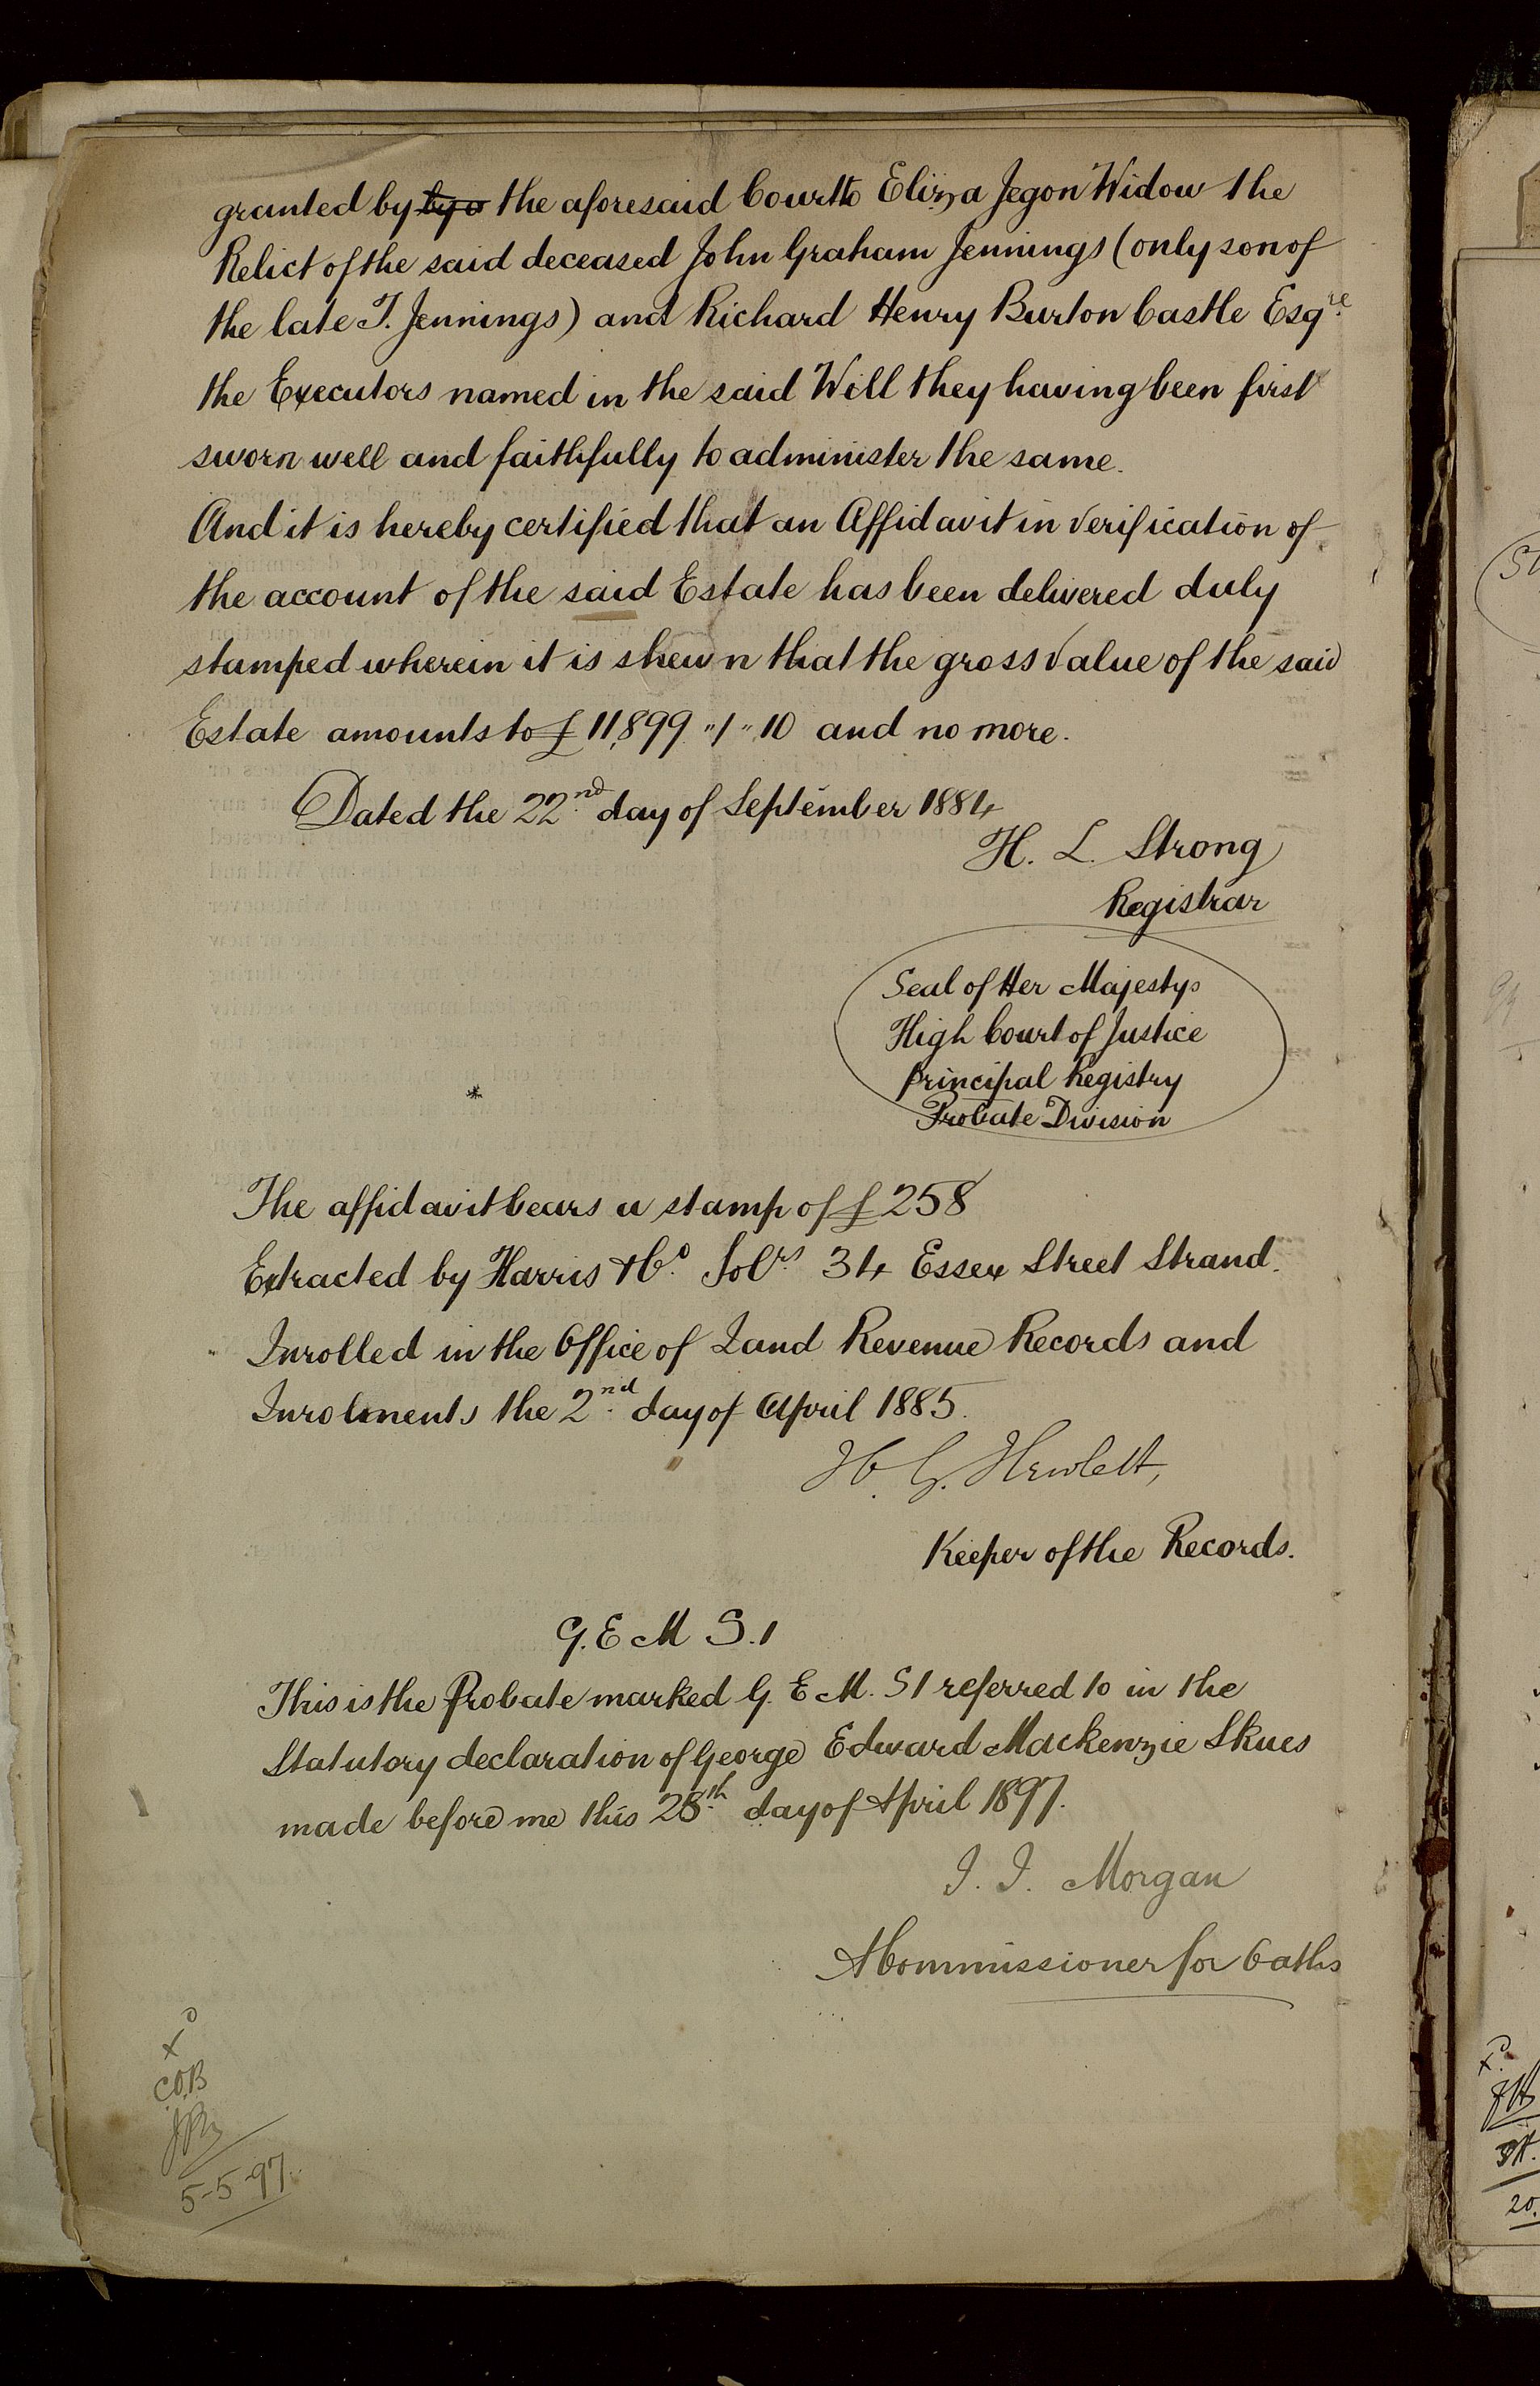 granted by by a the aforesaid Court to Eliza Jegon Widow the
Relict of the said deceased John Graham Jennings (only son of
the late J. Jennings) and Richard Henry Burton Castle Esqre
the Executors named in the said Will they having been first
sworn well and faithfully to administer the same.
And it is hereby certified that an Affidavit in verification of
the account of the said Estate has been delivered duly
stamped wherein it is shewn that the gross value of the said
Estate amounts to £11,899 " 1 " 10 and no more.
Dated the 22nd day of September 1884
H. L. Strong
Registrar
Seal of Her Majestys
High Court of Justice
Principal Registry
Probate Division
The affidavit bears a stamp of £258
Extracted by Harris & Co. Solrs 34 Essex Street Strand.
Inrolled in the Office of Land Revenue Records and
Inrolments the 2nd day of April 1885.
H. G. Hewlett,
Keeper of the Records.
G. E M S. 1
This is the Probate marked G. E M. S 1 referred to in the
Statutory declaration of George Edward Mackenzie Skues
made before me this 28th day of April 1897.
J. J. Morgan
A Commissioner for Oaths
5-5-97.
20.